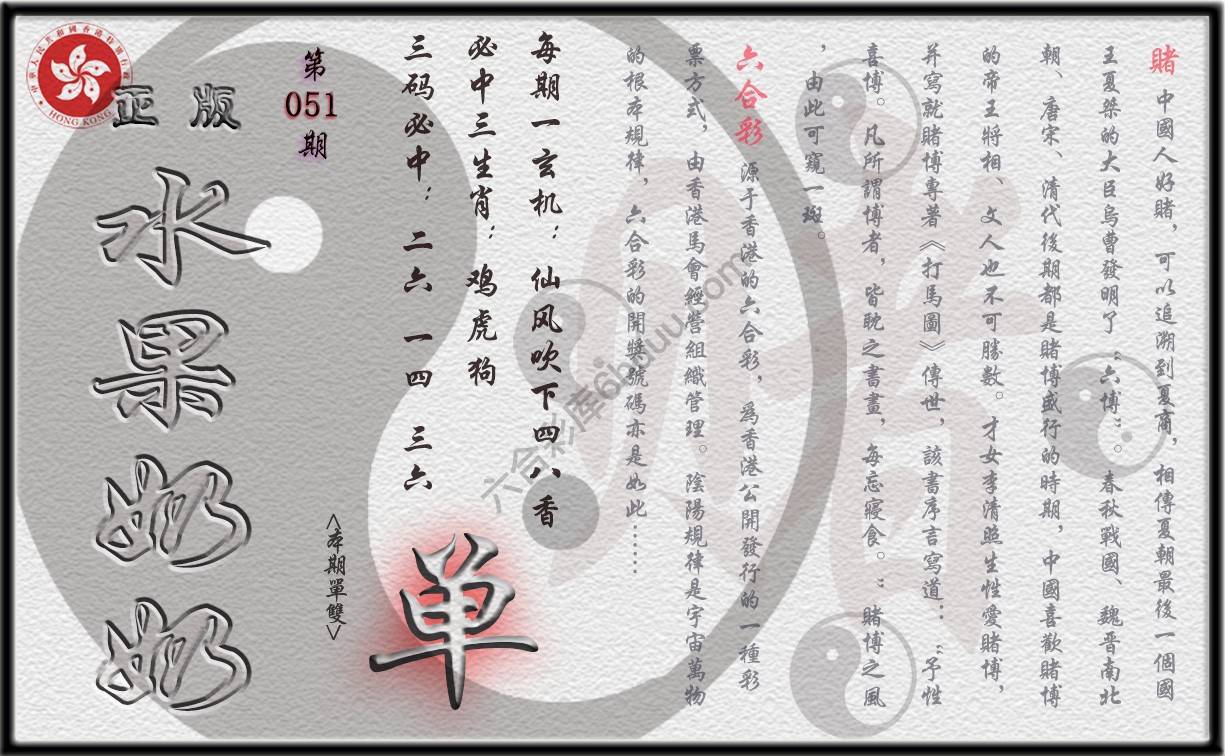 賭 中國人好賭，可以追溯到夏商，相傳夏朝最後一個國
王夏桀的大臣烏曹發明了“六博”。春秋戰國、魏晋南北
朝、唐宋、清代後期都是賭博盛行的時期，中國喜歡賭博
的帝王將相、文人也不可勝數。才女李清照生性愛賭博，
并寫就賭博專著《打馬圖》傳世，該書序言寫道：“予性
喜博。凡所謂博者，皆耽之書畫，每忘寢食。”賭博之風
，由此可窺一斑。
六合彩 源于香港的六合彩，爲香港公開發行的一種彩
票方式，由香港馬會經營組織管理。陰陽規律是宇宙萬物
的根本規律，六合彩的開獎號碼亦是如此……
每期一玄机：仙风吹下四八香
必中三生肖：鸡虎狗
三码必中：二六 一四 三六
<本期單雙>
单
第
051
期
正版
水果奶奶
中華人民共和國香港特別行政區
HONG KONG
六合彩库6hduu.com